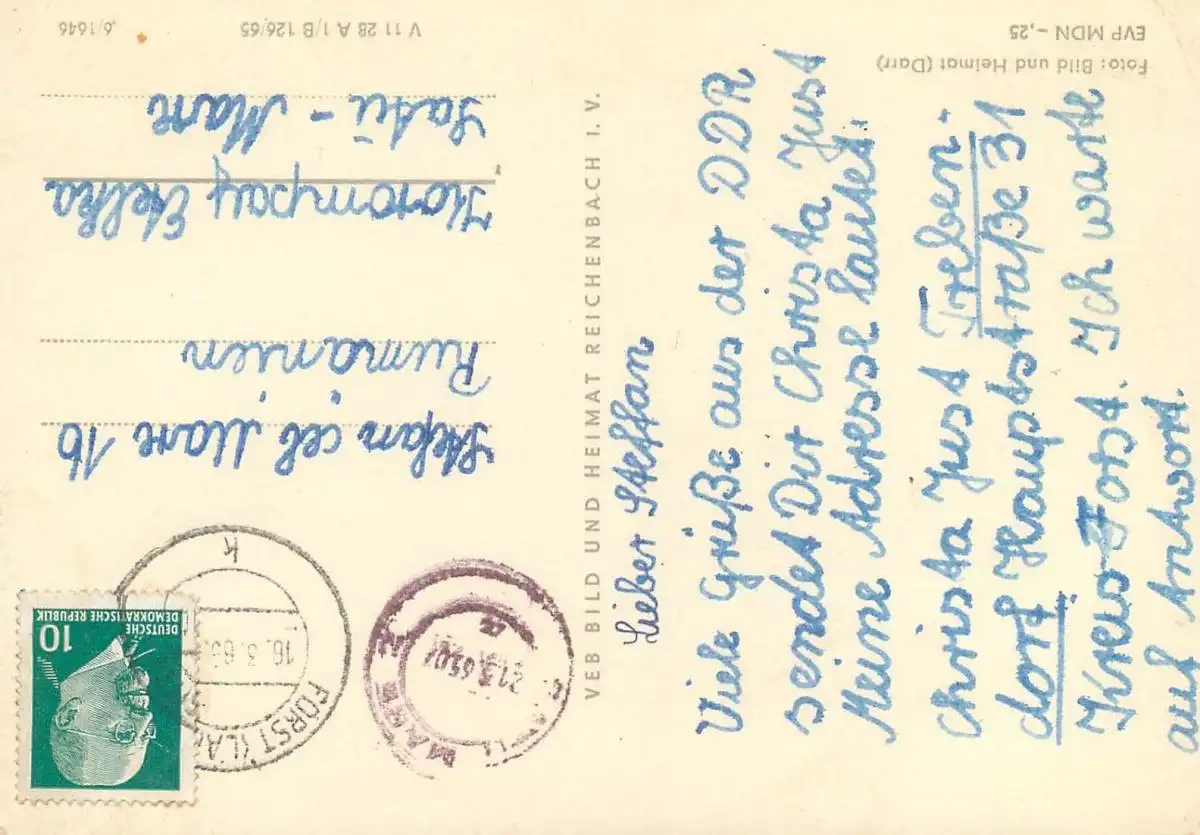 Lieber Steffan
Viele Grüße aus der DDR
sendet Dir Christa Just
Meine Adresse lautet.
Christa Just Treben-
dorf Hauptstraße 31
Kreis Forst. Ich warte
auf Antwort.
VEB BILD UND HEIMAT REICHENBACH I. V.
Foto: Bild und Heimat (Darr)
EVP MDN -,25
V 11 28 A 1/B 126/65
6/1646
DEUTSCHE
DEMOKRATISCHE REPUBLIK
10
FORST (LA
16.3.65
k
MARE
21.3.65
Stefan cel Mare 16
Rumänien
Korompay Etelka
Satu - Mare